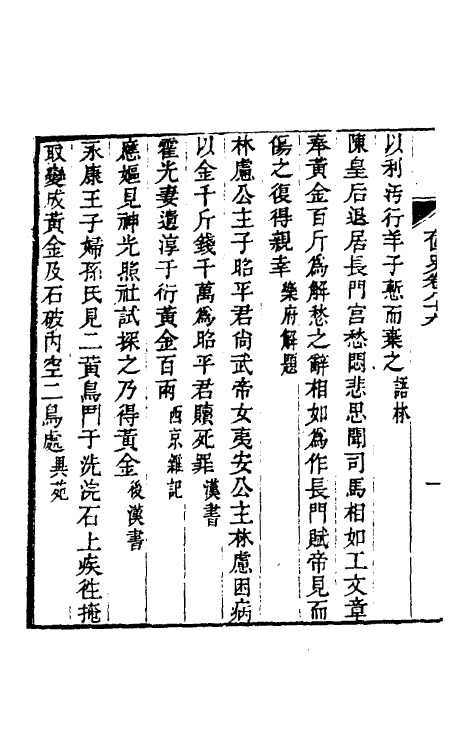 以利汚行羊子慙而棄之語林
陳皇后退居長門宮愁悶悲思聞司馬相如工文章
奉黃金百斤爲解愁之辭相如爲作長門賦帝見而
傷之復得親幸樂府解題
林慮公主子昭平君尚武帝女夷安公主林慮困病
以金千斤錢千萬爲昭平君贖死罪漢書
霍光妻遺淳于衍黃金百兩西京雜記
應嫗見神光照社試探之乃得黃金後漢書
永康王子婦孫氏見二黃鳥鬥于洗浣石上疾徃掩
取變成黃金及石破內空二鳥處異苑
卷八十六
一